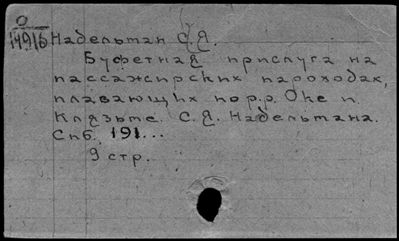 О
14916
Надельман С.Я.
Буфетная прислуга на
пассажирских пароходах,
плавающих по р.р. Оке и
Клязьме. С.Я. Надельмана.
Спб. 191...
9 стр.